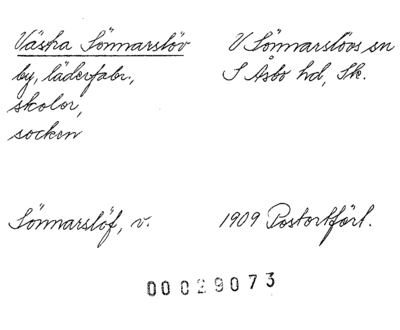 Västra Sönnarslöv
V Sönnarslövs sn
by, läderfabr.,
S Åsbo hd, Sk.
skolor,
socken
Sönnarslöf, v.
1909 Postortförl.
00029073